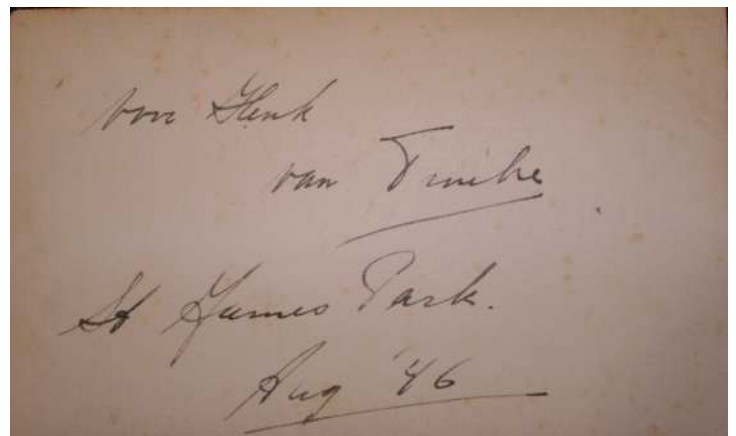 voor Henk
van Tineke
St James Park.
Aug '46